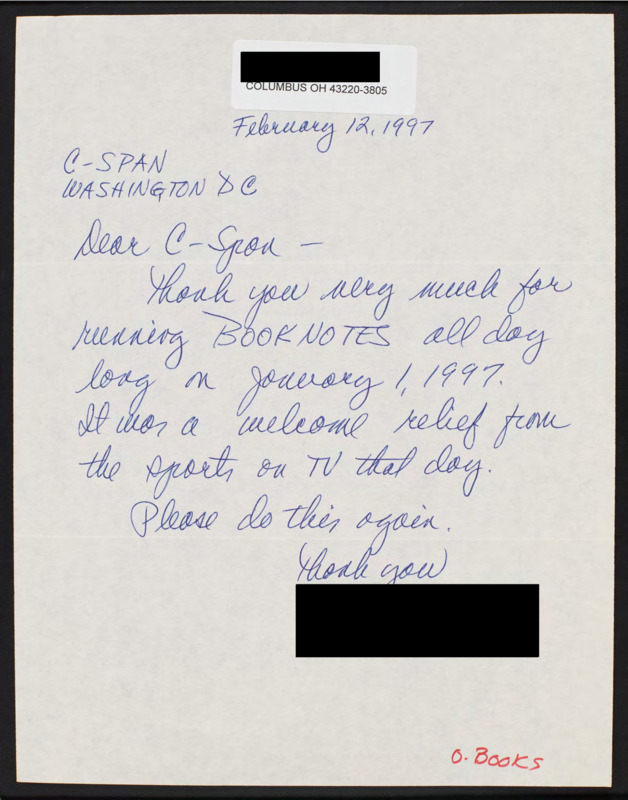 COLUMBUS OH 43220-3805
February 12, 1997
C-SPAN
WASHINGTON DC
Dear C-Span —
Thank you very much for
running BOOKNOTES all day
long on January 1, 1997.
It was a welcome relief from
the sports on TV that day.
Please do this again.
Thank you
O. BOOKS